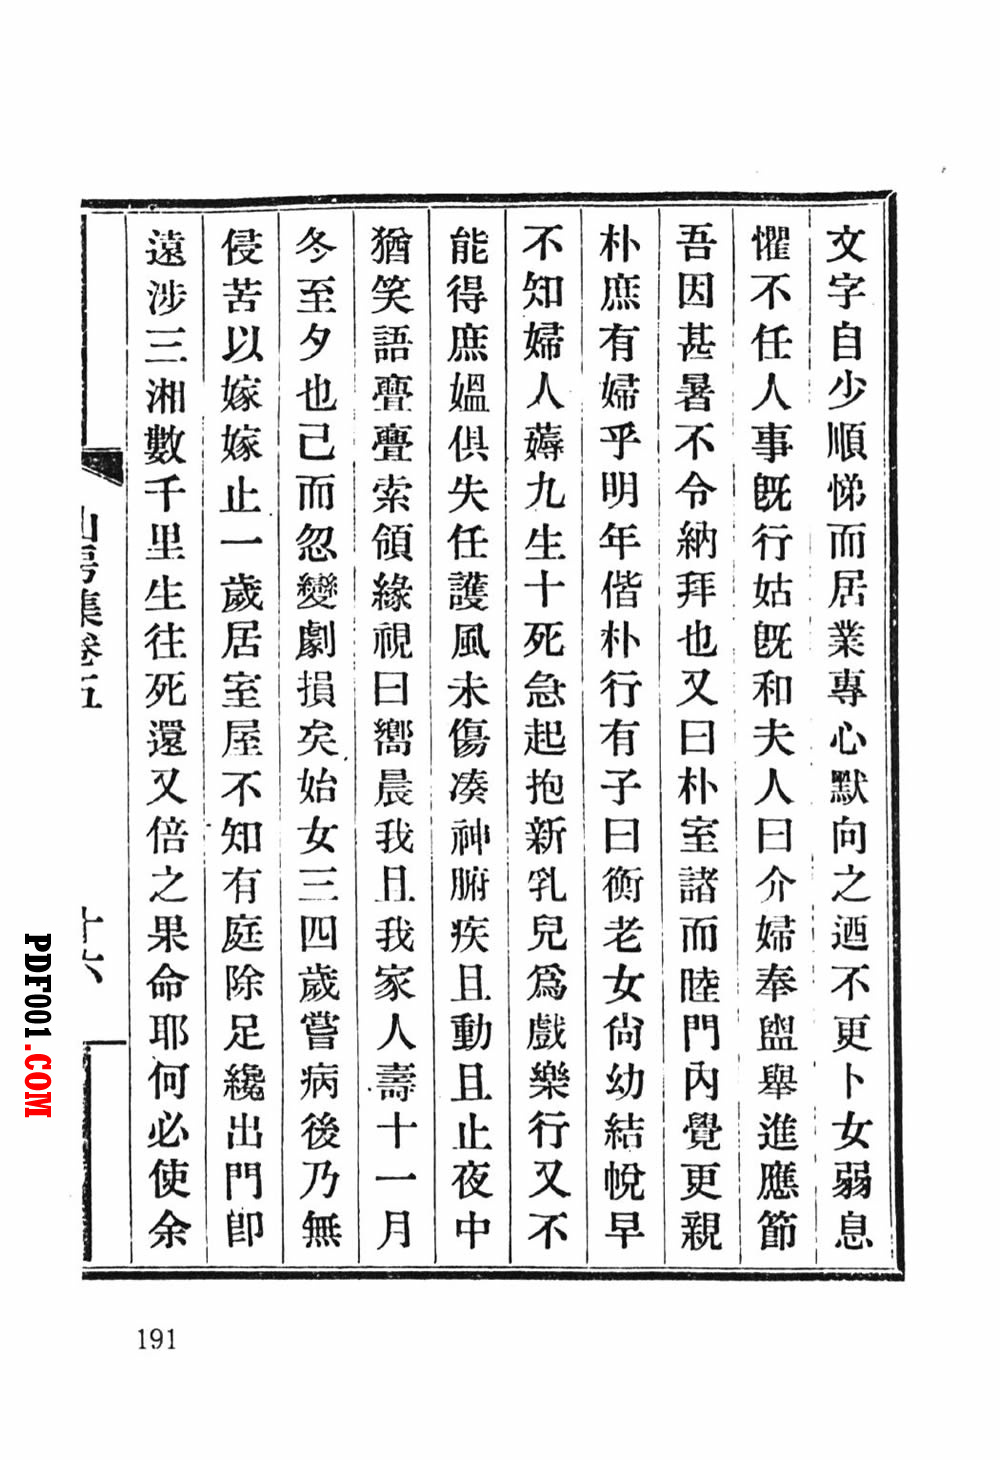 文字自少順悌而居業專心默向之迺不更卜女弱息
懼不任人事旣行姑旣和夫人曰介婦奉盥舉進應節
吾因甚暑不令納拜也又曰朴室諸而睦門內覺更親
朴庶有婦乎明年偕朴行有子曰衡老女尙幼結帨早
不知婦人薅九生十死急起抱新乳兒爲戲樂行又不
能得庶媼俱失任護風未傷凑神腑疾且動且止夜中
猶笑語亹亹索領緣視曰嚮晨我且我家人壽十一月
冬至夕也已而忽變劇損矣始女三四歲嘗病後乃無
侵苦以嫁嫁止一歲居室屋不知有庭除足纔出門卽
遠涉三湘數千里生往死還又倍之果命耶何必使余
山房集卷五
十六
191
PDF001.COM